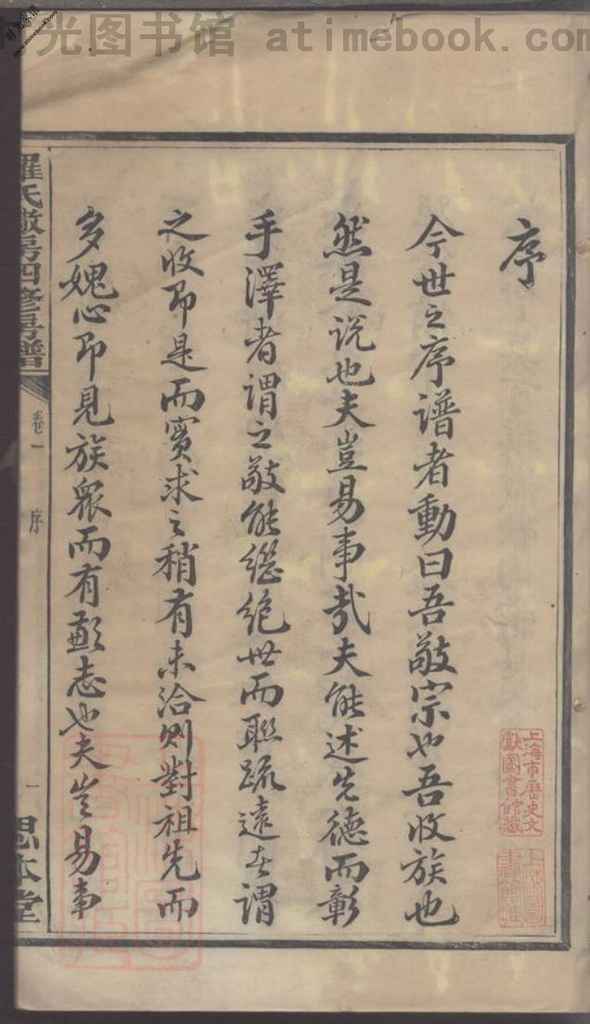 光图书馆 atimebook.com
序
今世之序譜者動曰吾敬宗也吾收族也
然是说也夫豈易事哉夫能述先德而彰
手澤者謂之敬能繼絶世而聯疏遠者謂
之收即是而實求之稍有未洽則對祖先而
多媿心即見族衆而有慙志也夫豈易事
羅氏敬房四修房譜
卷一
序
一
思本堂
上海市歷史文
獻圖書館藏